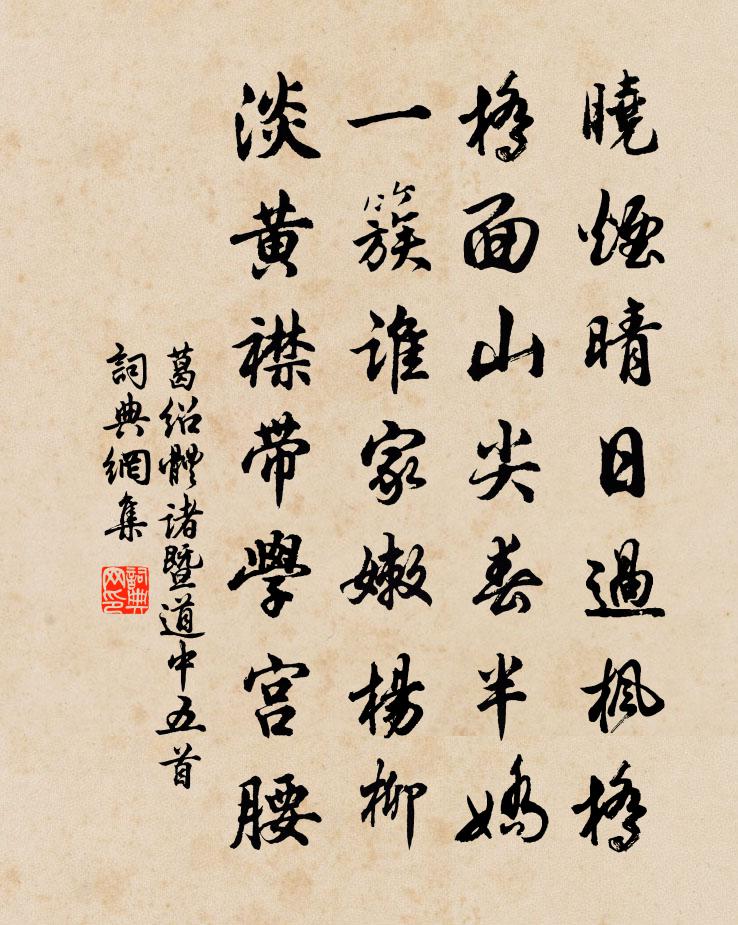 曉煙晴日過楓橋
橋面山尖春半嬌
一簇誰家嫩楊柳
淡黃襟帶學宮腰
葛紹體諸暨道中五首
詞典網集
詞典网印